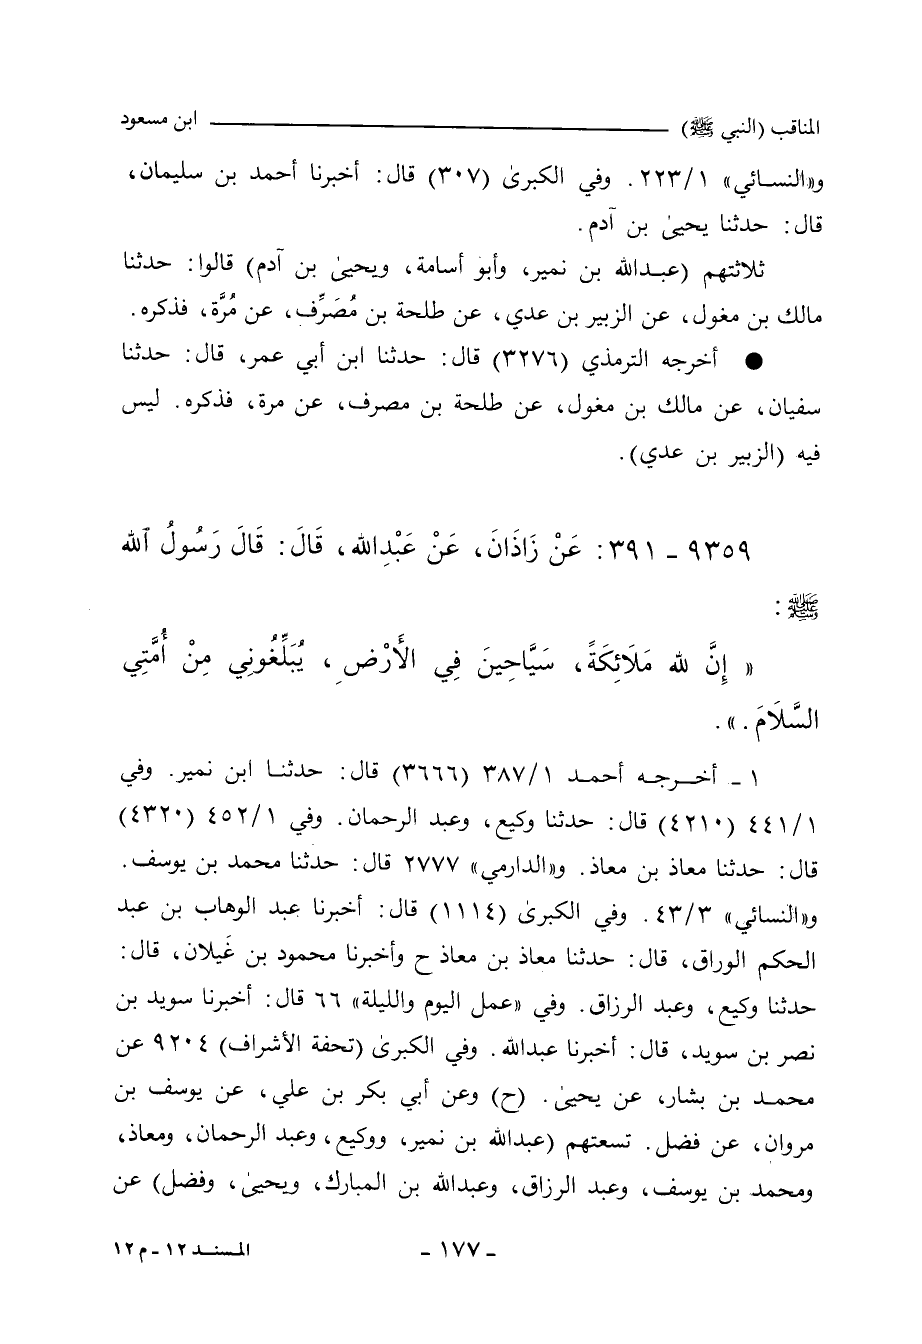 المناقب (النبي ﷺ) ــــــــ ابن مسعود
و«النسائي» ٢٢٣/١. وفي الكبرىٰ (٣٠٧) قال: أخبرنا أحمد بن سليمان،
قال: حدثنا يحيىٰ بن آدم.
ثلاثتهم (عبدالله بن نمير، وأبو أسامة، ويحيىٰ بن آدم) قالوا: حدثنا
مالك بن مغول، عن الزبير بن عدي، عن طلحة بن مُصَرِّف، عن مُرَّة، فذكره.
● أخرجه الترمذي (٣٢٧٦) قال: حدثنا ابن أبي عمر، قال: حدثنا
سفيان، عن مالك بن مغول، عن طلحة بن مصرف، عن مرة، فذكره. ليس
فيه (الزبير بن عدي).
٩٣٥٩ - ٣٩١: عَنْ زَاذَانَ، عَنْ عَبْدِالله، قَالَ: قَالَ رَسُولُ ٱلله
ﷺ:
« إِنَّ لله مَلَائِكَةً، سَيَّاحِينَ فِي الأَرْضِ، يُبَلِّغُونِي مِنْ أُمَّتِي
السَّلَامَ.».
١ - أخرجه أحمد ٣٨٧/١ (٣٦٦٦) قال: حدثنا ابن نمير. وفي
٤٤١/١ (٤٢١٠) قال: حدثنا وكيع، وعبد الرحمان. وفي ٤٥٢/١ (٤٣٢٠)
قال: حدثنا معاذ بن معاذ. و«الدارمي» ٢٧٧٧ قال: حدثنا محمد بن يوسف.
و«النسائي» ٤٣/٣. وفي الكبرىٰ (١١١٤) قال: أخبرنا عبد الوهاب بن عبد
الحكم الوراق، قال: حدثنا معاذ بن معاذ ح وأخبرنا محمود بن غَيلان، قال:
حدثنا وكيع، وعبد الرزاق. وفي «عمل اليوم والليلة» ٦٦ قال: أخبرنا سويد بن
نصر بن سويد، قال: أخبرنا عبدالله. وفي الكبرىٰ (تحفة الأشراف) ٩٢٠٤ عن
محمد بن بشار، عن يحيىٰ. (ح) وعن أبي بكر بن علي، عن يوسف بن
مروان، عن فضل. تسعتهم (عبدالله بن نمير، ووكيع، وعبد الرحمان، ومعاذ،
ومحمد بن يوسف، وعبد الرزاق، وعبدالله بن المبارك، ويحيىٰ، وفضل) عن
- ١٧٧ - المسند ١٢ - م ١٢